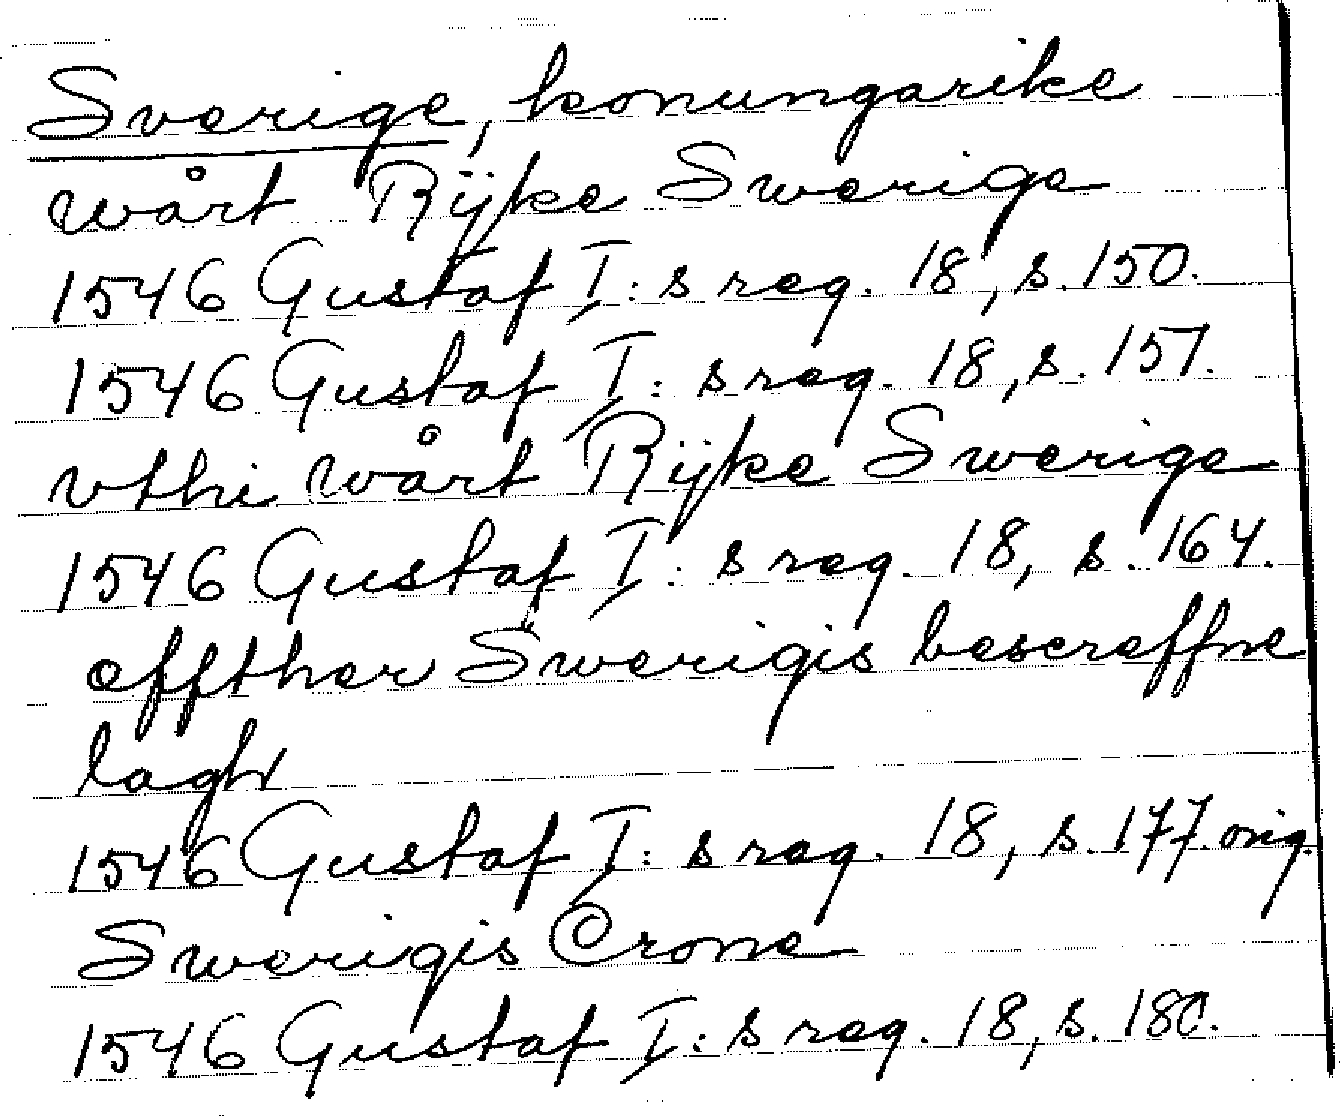 Sverige, konungarike
wårt Rÿke Swerige
1546 Gustaf I:s reg. 18, s. 150.
1546 Gustaf I:s reg. 18, s. 157.
vthi wårt Rÿke Swerige
1546 Gustaf I:s reg. 18, s. 164.
effther Swerigis bescreffne
lagh
1546 Gustaf I:s reg. 18, s. 177. orig.
Swerigis Crone
1546 Gustaf I:s reg. 18, s. 180.